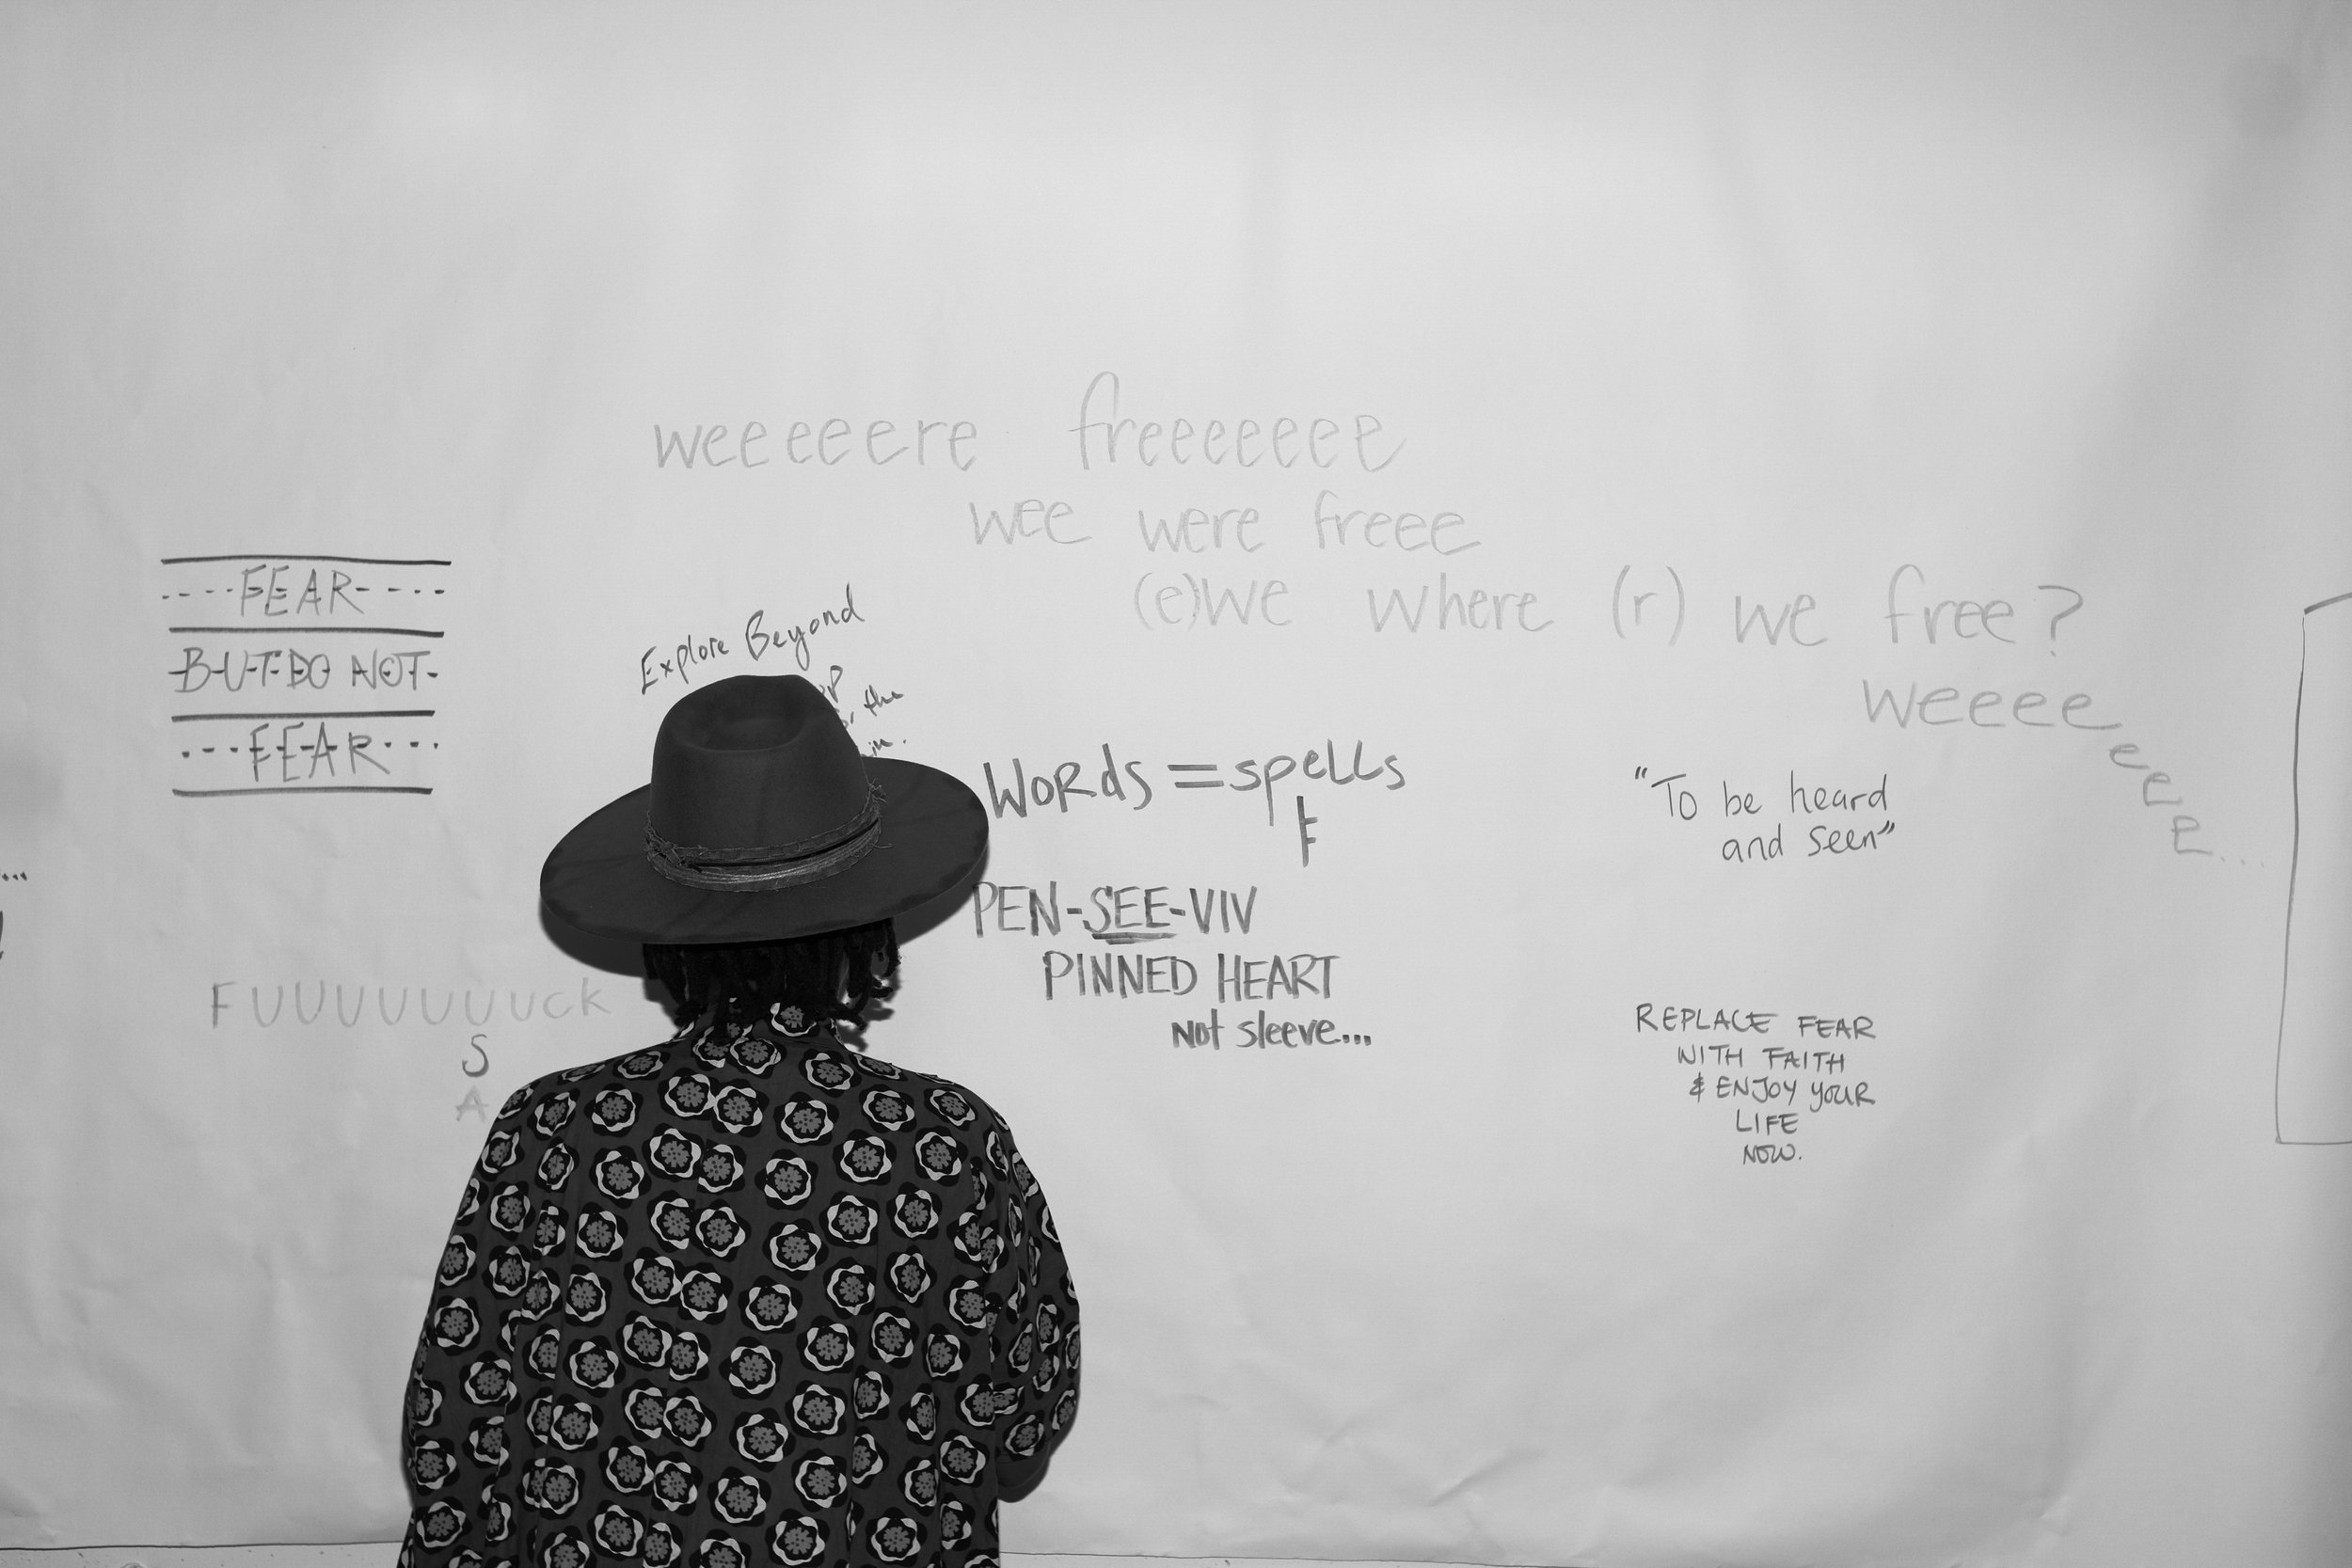 weeeeere freeeeeee
wee were freee
(e)we where (r) we free?
weeeeeeee...
FEAR
BUT DO NOT
FEAR
Explore Beyond
the
WORds = spells
"To be heard
and seen"
PEN-SEE-VIV
PINNED HEART
Not sleeve...
FUUUUUUUuck
S
A
REPLACE FEAR
WITH FAITH
& ENJOY YOUR
LIFE
NOW.